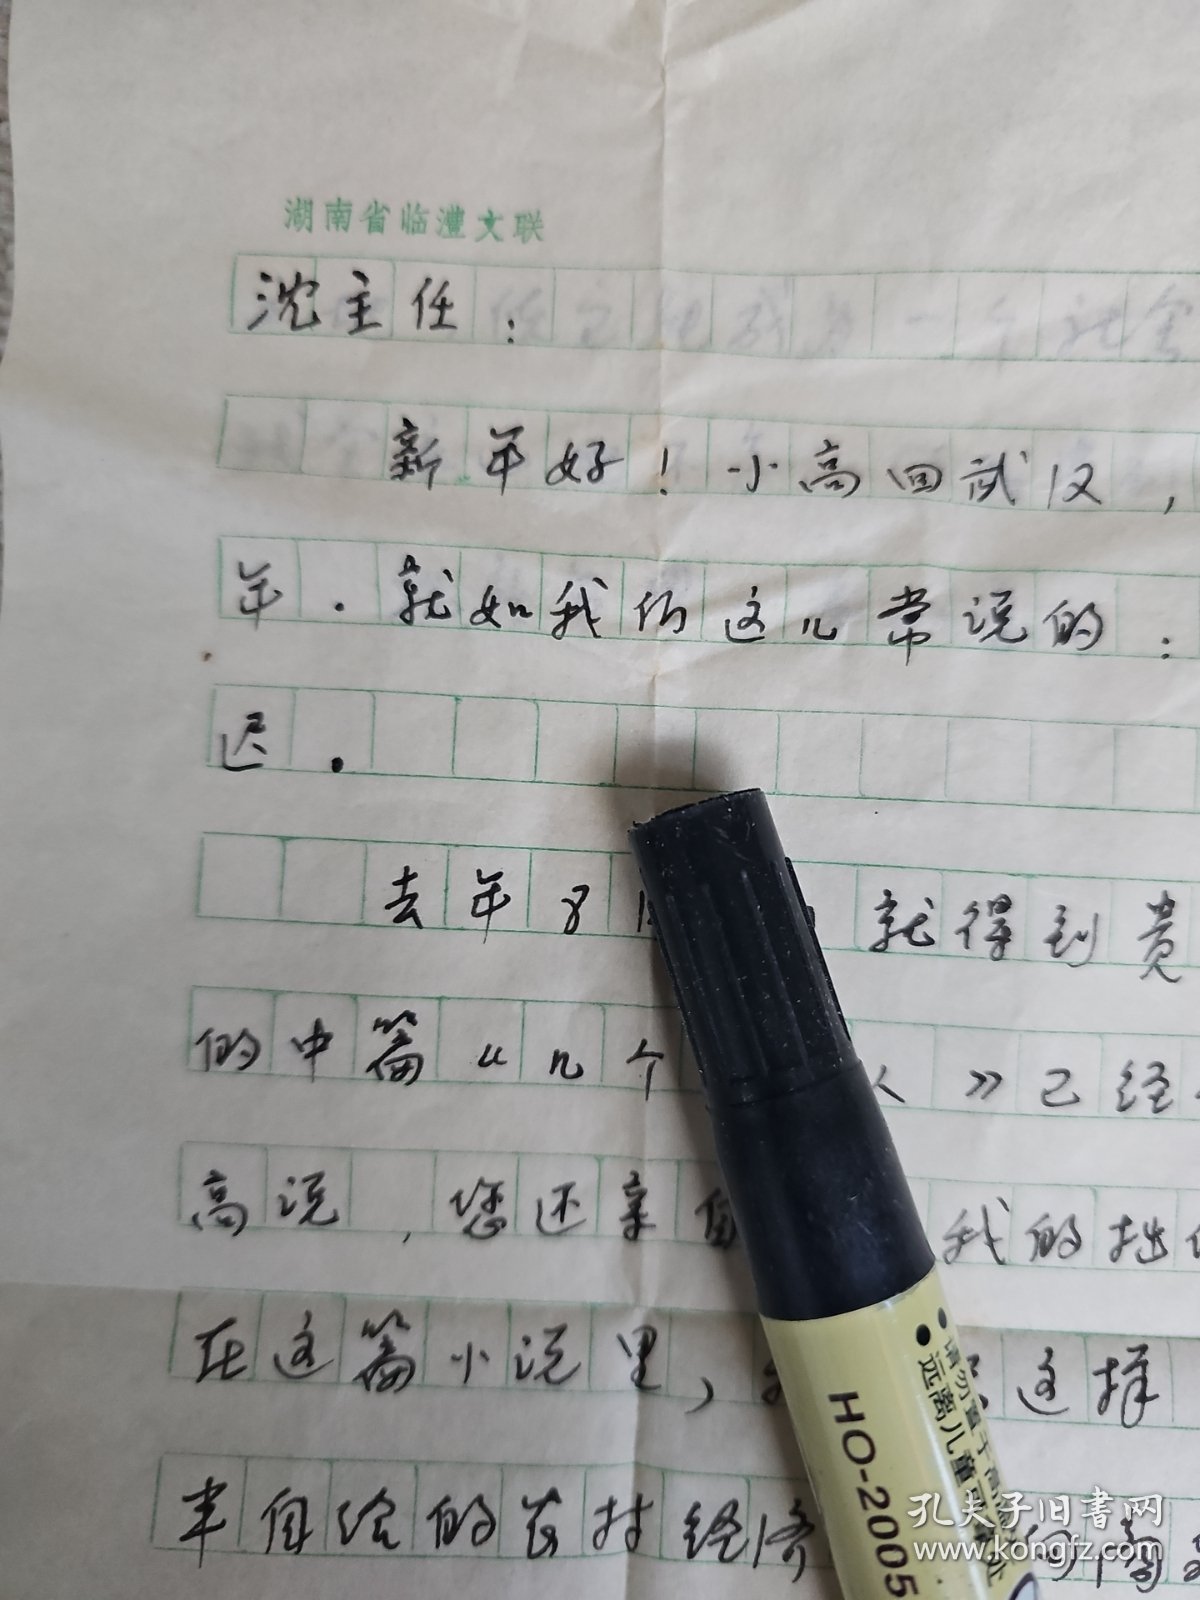 湖南省临澧文联
沈主任：
新年好！小高回武汉，
年．就如我们这儿常说的：
迟．
去年8 就得到贵
的中篇《几个 人》已经
高说，您还亲自 我的拙作
在这篇小说里， 这样
半自给的农村经济 向商
HO-2005
远离儿童
孔夫子旧书网
www.kongfz.com